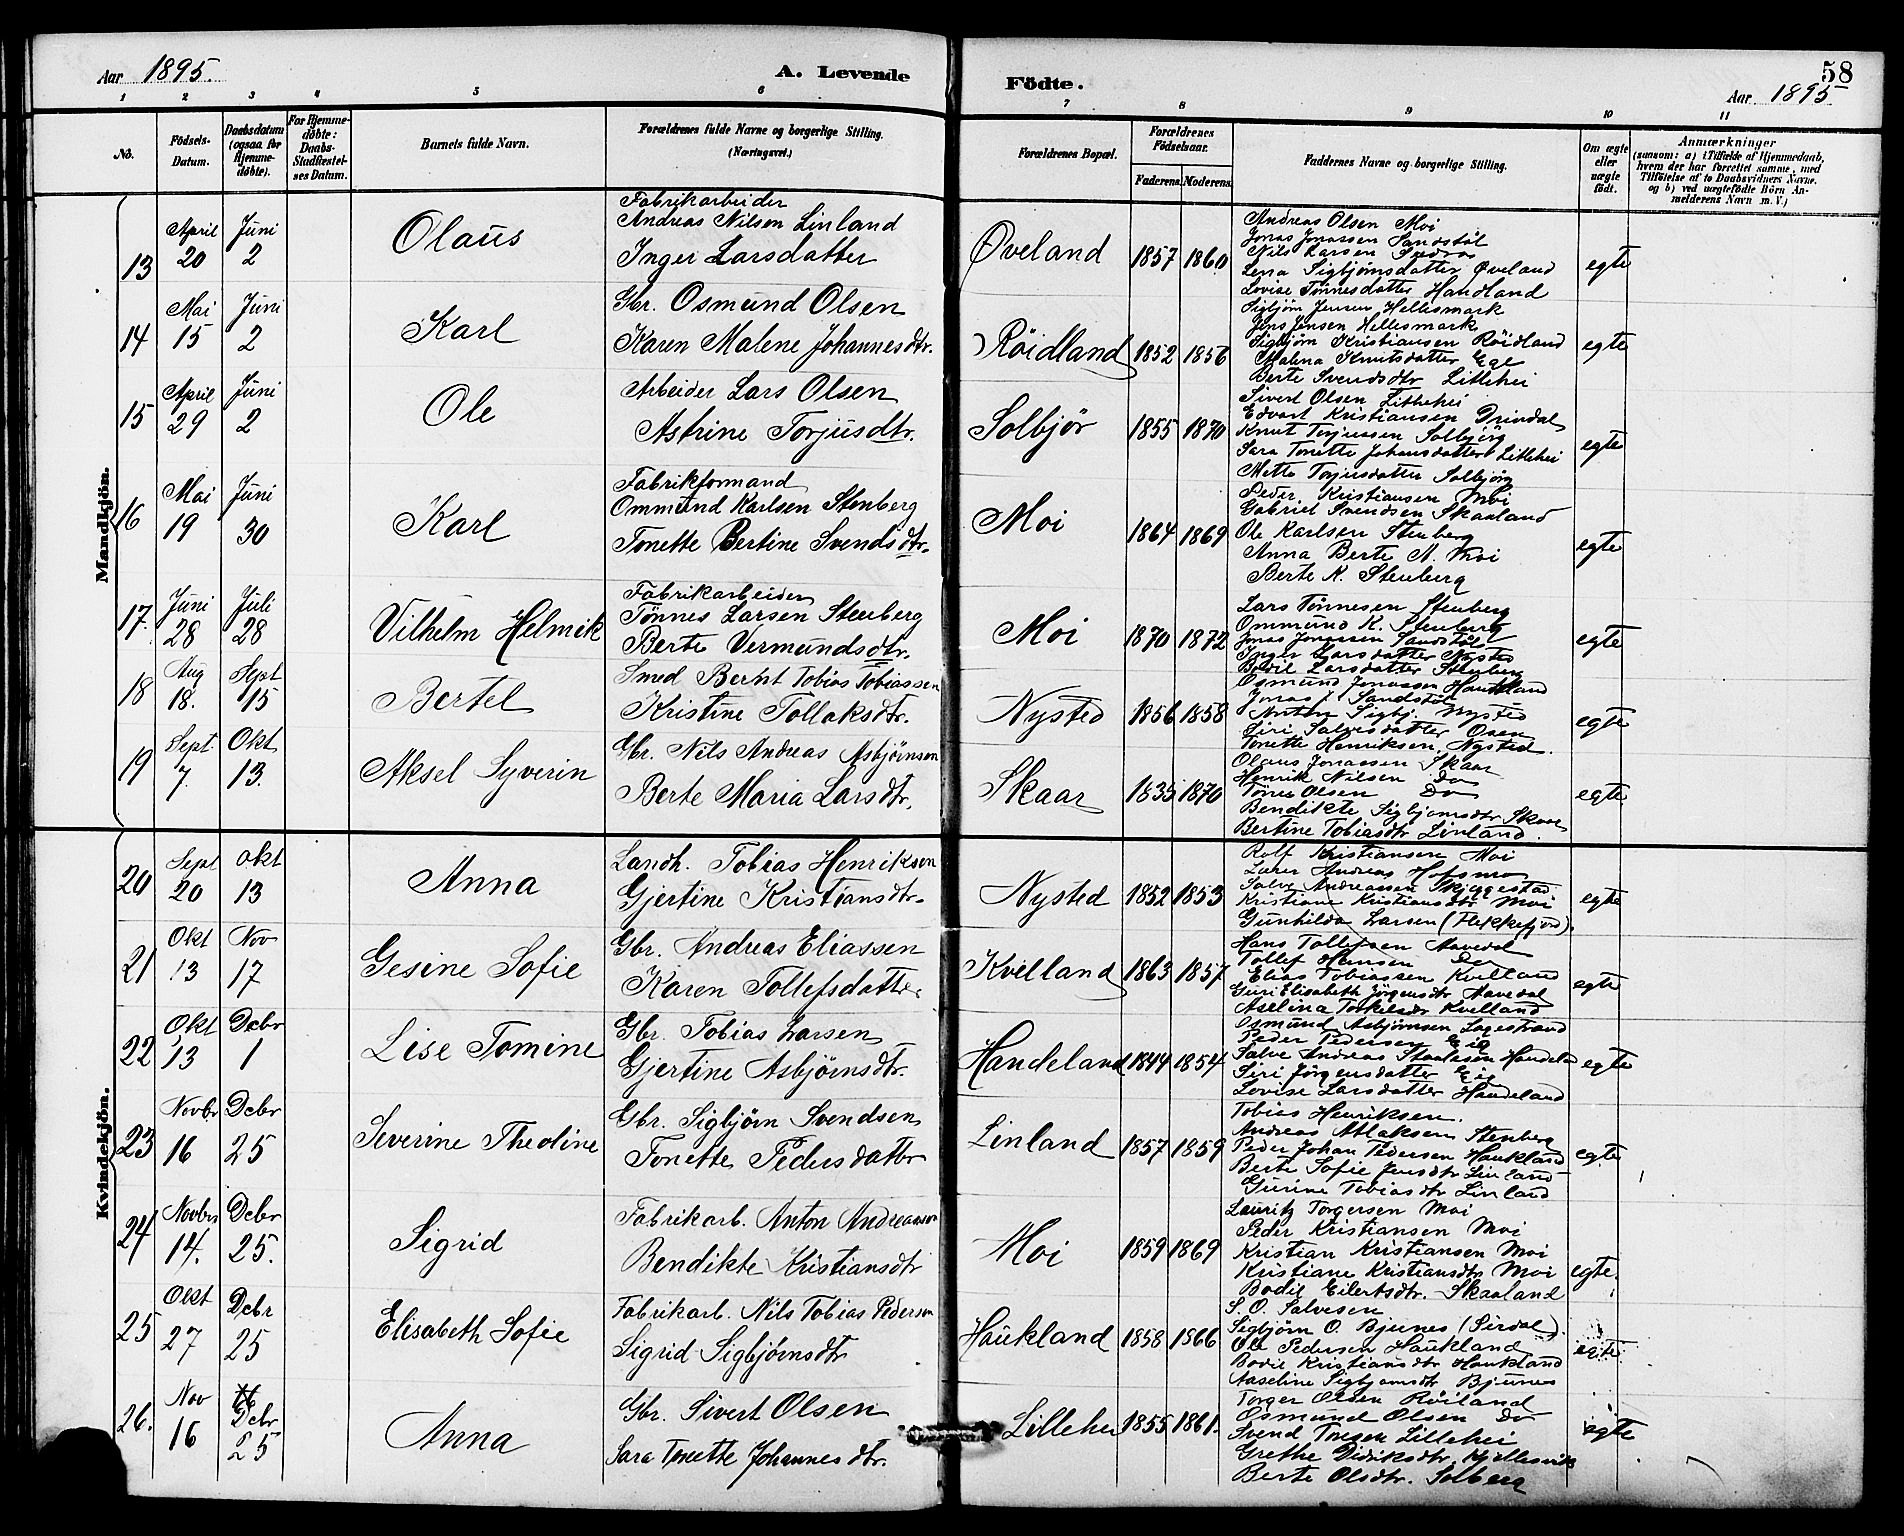 Aar 1895.
A. Levende
Födte.
58
Aar 1895
1 2 3 4 5 6 7 8 9 10 11
No.
Födsels-Datum.
Daabsdatum (ogsaa for Hjemme-döbte).
For Hjemme-döbte: Daabs-Stadfæstel-ses Datum.
Barnets fulde Navn.
Forældrenes fulde Navne og borgerlige Stilling.
(Næringsvei.)
Forældrenes Bopæl.
Forældrenes Födselsaar.
Faderens. Moderens.
Faddernes Navne og borgerlige Stilling.
Om ægte eller uægte födt.
Anmærkninger
(saasom: a) i Tilfælde af Hjemmedaab, hvem der har forrettet samme, med Tilföielse af to Daabsvidners Navne, og b) ved uægtefödte Börn Anmelderens Navn m. V.)
Mandkjön.
13 April 20 Juni 2 Olaus
Fabrikarbeider
Andreas Nilsen Linland
Inger Larsdatter
Øveland 1857 1860
Andreas Olsen Moi
Jonas Jonassen Sandstöl
Nils Larsen
Lena Sigbjörnsdatter Øveland
Lovise Tönnesdatter Handland
egte
14 Mai 15 Juni 2 Karl
Gbr. Osmund Olsen
Karen Malene Johannesdtr.
Röidland 1852 1856
Sigbjörn Jensen Hellesmark
Jens Jensen Hellesmark
Sigbjörn Kristiansen Röidland
Malena Knutsdatter Ege
Berte Svendsdtr Littlehei
egte
15 April 29 Juni 2 Ole
Arbeider Lars Olsen
Astrine Torjusdtr.
Solbjör 1855 1870
Sivert Olsen Littlehei
Edvart Kristiansen Drindal
Knut Torjussen Solbjörg
Sara Tonette Johansdatter Littlehei
Mette Torjusdatter Solbjörg
egte
16 Mai 19 Juni 30 Karl
Fabrikformand
Ommund Karlsen Stenberg
Tonette Bertine Svendsdtr.
Moi 1864 1869
Peder Kristiansen Moi
Gabriel Svendsen Skaaland
Ole Karlsen Stenberg
Anna Berte A. Moi
Berte K. Stenberg
egte
17. Juni 28 Juli 28 Vilhelm Helmik
Fabrikarbeider
Tönnes Larsen Stenberg
Berte Vermundsdtr.
Moi 1870 1872
Lars Tönnesen Stenberg
Ommund K. Stenberg
Jonas Jonassen Sandstöl
Inger Larsdatter Nysted
Bodil Larsdatter Stenberg
egte
18 Aug 18. Sept 15 Bertel
Smed Bernt Tobias Tobiassen
Kristine Tollaksdtr.
Nysted 1856 1858
Osmund Jonassen Haukland
Jonas J. Sandstöl
Anton Sigbj. Nysted
Siri Salvesdatter Osen
Tonette Henriksen, Nysted.
egte
19 Sept. 7. Okt 13. Aksel Syverin
Gbr. Nils Andreas Asbjörnsen
Berte Maria Larsdtr.
Skaar 1835 1870
Olaus Jonassen Skaar
Henrik Nilsen Do
Tönes Olsen Do
Bendikte Sigbjörnsdtr Skaar
Bertine Tobiasdtr Linland.
egte
Kvindekjön.
20 Sept 20 Okt 13 Anna
Landh. Tobias Henriksen
Gjertine Kristiansdtr.
Nysted 1852 1853
Rolf Kristiansen Moi
Lærer Andreas Hofsmo
Salve Andreassen Skjeggestad
Kristiane Kristiansdtr Moi
Gunhilda Larsen (Flekkefjord).
egte
21 Okt 13 Nov 17 Gesine Sofie
Gbr. Andreas Eliassen
Karen Tollefsdatter
Kvelland 1863 1857
Hans Tollefsen Aavedal
Tollef Hansen Do
Elias Tobiassen Kvelland
Guri Elisabeth Jörgensdtr Aavedal
Asellina Torkelsdtr Kvelland
egte
22 Okt 13 Dcbr 1 Lise Tomine
Gbr. Tobias Larsen
Gjertine Asbjörnsdtr.
Handeland 1844 1854
Osmund Asbjörnsen Lagestrand
Peder Pedersen Eig
Salve Andreas Staalesen Handeland
Siri Jörgensdatter Eig
Lovise Larsdatter Handeland
egte
23 Novbr 16 Dcbr 25 Severine Theoline
Gbr. Sigbjörn Svendsen
Tonette Pedersdatter
Linland 1857 1859
Tobias Henriksen.
Andreas Atlaksen Stenberg
Peder Johan Pedersen Haukland
Berte Sofie Jensdtr Linland
Gurine Tobiasdtr Linland
egte
24 Novbr 14. Dcbr 25. Sigrid
Fabrikarb. Anton Andreassen
Bendikte Kristiansdtr
Moi 1859 1869
Lauritz Torgersen Moi
Peder Kristiansen Moi
Kristian Kristiansen Moi
Kristiane Kristiansdtr Moi
Bodil Eilertsdtr. Skaaland
egte.
25 Okt 27 Dcbr 25 Elisabeth Sofie
Fabrikarb. Nils Tobias Pedersen
Sigrid Sigbjörnsdtr
Haukland 1858 1866
S. O. Salvesen
Sigbjörn O. Bjunes (Sirdal).
Ole Pedersen Haukland
Bodil Kristiansdtr Haukland
Aaseline Sigbjörnsdtr Bjunes
egte
26. Nov 16 Dcbr 25 Anna
Gbr. Sivert Olsen
Sara Tonette Johannesdtr.
Lillehei 1855 1861.
Torger Olsen Röiland
Osmund Olsen Do
Svend Lillehei
Grethe Didriksdtr. Kjellesvik
Berte Olsdtr. Solberg
egte